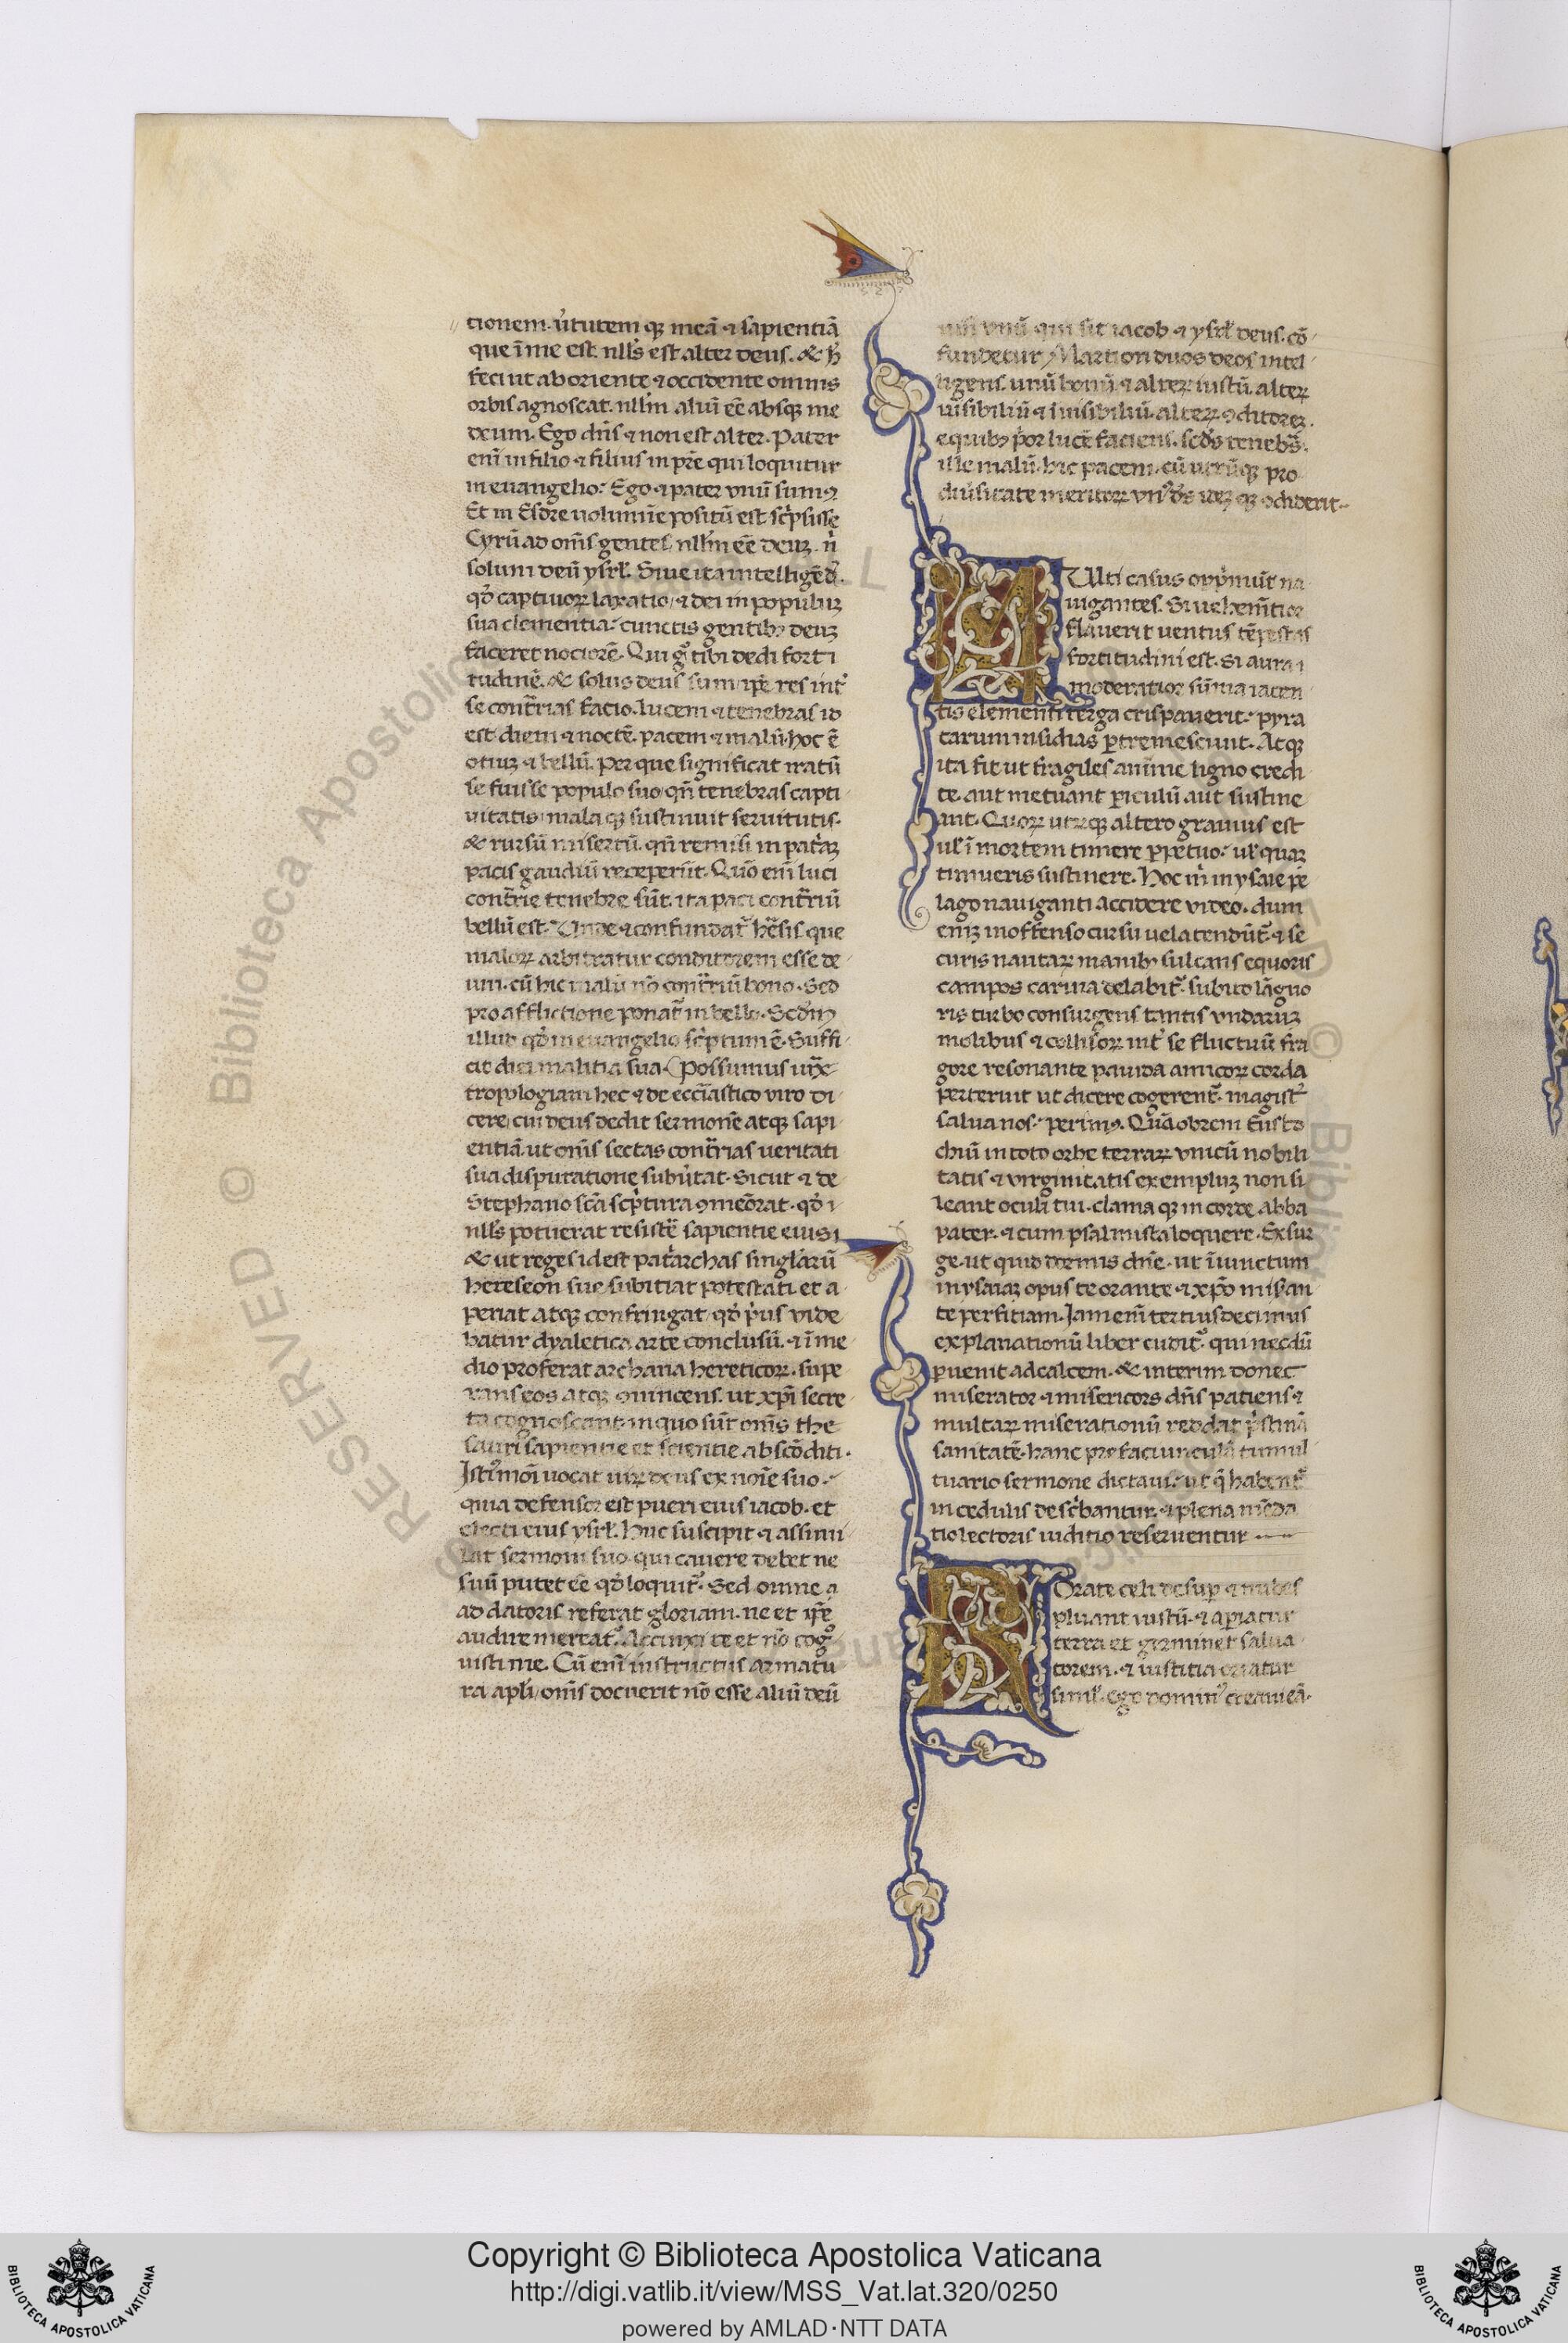 tionem. v̾tutem q̨ meã ⁊ sapientiã
que ĩ me est. nll̾s est alter deus. & h̾
feci ut ab oriente ⁊ occidente omnis
orbis agnoscat. nll̃m aliũ eẽ absq̨ me
deum. Ego dñs ⁊ non est alter. Pater
enĩ in filio ⁊ filius in pr̃e qui loquitur
in euangelio: Ego ⁊ pater vnũ sumꝯ
Et in Esdre uolumĩe positũ est sc̾psisse
Cyrũ ad om̃s gentes, nll̃m eẽ deuꝫ. n̾
solum deũ ysrl̃. Siue ita intelligẽd̾.
qd̾ captiuoꝝ laxatio, ⁊ dei in populuꝫ
sua clementia: cunctis gentibꝫ deuꝫ
faceret nociorẽ. Qui g̊ tibi dedi forti
tudinẽ. & solus deus sum, ip̃e res int̾
se cont̾rias facio. lucem ⁊ tenebras id
est diem ⁊ noctẽ. pacem ⁊ malũ. hoc ẽ
otiuꝫ ⁊ bellũ. Per que significat iratũ
se fuisse populo suo, qñ tenebras capti
uitatis, mala q̨ sustinuit seruitutis.
& rursũ misertũ. qñ remissi in pat̾aꝫ
pacis gaudiũ receperũt. Quõ enĩ luci
cont̾rie tenebre sũt. ita paci cont̾riũ
bellũ est. Unde ⁊ confundat̾ h̾esis que
maloꝝ arbitratur conditorem esse de
um. cũ hic malũ nõ cont̾riũ bono. Sed
pro afflictione ponat̾ in bello. Scd̃m
illud qd̾ in euangelio sc̾ptum ẽ. Suffi
cit diei malitia sua. Possumus iux̃
tropologiam hec ⁊ de eccl̃iastico viro di
cere, cui deus dedit sermonẽ atq̨ sapi
entiã. ut om̃s sectas cont̾rias ueritati
sua disputatione subu̾tat. Sicut ⁊ de
Stephano sc̃a sc̾ptura ꝯmeõrat. qd̾ ĩ
nll̾s potuerat resistẽ sapientie eius.
& ut reges id est pat̾archas singl̾arũ
hereseon sue subitiat potestati. et a
periat atq̨ confringat, qd̾ p̾us vide
batur dyaletica arte conclusũ. ⁊ ĩ me
dio proferat archana hereticoꝝ. supe
rans eos atq̨ ꝯuincens. ut xp̃i secre
ta cognoscant. in quo sũt om̃s the
sauri sapientie et scientie abscõditi.
Ist̾moĩ uocat uiꝝ deus ex noĩe suo.
quia defensor est pueri eius iacob. et
electi eius ysrl̃. Huc suscipit ⁊ assimi
lat sermoni suo. qui cauere debet ne
suũ putet eẽ qd̾ loquit̾. Sed omne a
ad datoris referat gloriam. ne et ip̃e
audire mereat̾. Accinxi te et nõ cog̊
uisti me. Cũ enĩ instructus armatu
ra apl̃i, om̃s docuerit nõ esse aliũ deũ
nisi vnũ qui sit iacob ⁊ ysrl̃ deus. cõ
fundetur Martion duos deos intel
ligens. unũ bonũ ⁊ alteꝝ iustũ. alteꝝ
uĩsibiliũ ⁊ ĩuisibiliũ. alteꝝ ꝯditoreꝫ.
e quibꝫ p̾or lucẽ faciens. scd̾s tenebr̾s.
ille malũ. hic pacem. cũ utrũq̨ pro
diu̾sitate meritoꝝ vnꝰ ds̃ ueꝫ q̨ ꝯdiderit.
MUlti casus opp̾munt na
uigantes. Si uehemẽtior
flauerit ventus tẽpestas
fortitudini est. Si aura ĩ
moderatior sũma iacen
tis elementi terga crispauerit: pyra
tarum insidias ꝑtremescunt. Atq̨
ita fit ut fragiles anime ligno credi
te. aut metuant ꝑiculũ aut sustine
ant. Quoꝝ utrũq̨ altero grauius est
ul̾ ĩ mortem timere ꝑpetuo: ul̾ quaꝫ
timueris sustinere. Hoc m̾ in ysaie pe
lago nauiganti accidere video. dum
enĩ inoffenso cursu uela tendũt̾ ⁊ se
curis nautaꝝ manibꝫ sulcans equoris
campos carina delabit̾. subito lãguo
ris turbo consurgens tantis vndaruꝫ
molibus ⁊ collisoꝝ int̾ se fluctuũ fra
gore resonante pauida amicoꝝ corda
perterruit ut dicere cogerent̾. magist̾
salua nos: perimꝯ. Quãobrem Eusto
chiũ in toto orbe terraꝝ vnicũ nobili
tatis ⁊ virginitatis exempluꝫ non si
leant oculi tui. clama q̨ in corde abba
pater. ⁊ cum psalmista loquere. Exsur
ge. ut quid dormis dñe. ut iniunctum
in ysaiaꝫ opus te orante ⁊ xp̃o miseran
te perfitiam. Jam enĩ tertiusdecimus
explanationũ liber cudit̾. qui necdũ
ꝑuenit ad calcem. & interim donec
miserator ⁊ misericors dñs patiens ⁊
multaꝝ miserationũ reddat p̾stinã
sanitatẽ. hanc prefaciunculã tumul
tuario sermone dictaui. ut q̃ habent̾
in cedulis desc̾bantur. ⁊ plena meda
tio lectoris iuditio reseruentur
ROrate celi desuꝑ ⁊ nubes
pluant iustũ. ⁊ aꝑiatur
terra et germinet salua
torem. ⁊ iustitia oriatur
simul̾. ego dominꝰ creaui eũ.
RESERVED © Biblioteca Apostolica
Copyright © Biblioteca Apostolica Vaticana
http://digi.vatlib.it/view/MSS_Vat.lat.320/0250
powered by AMLAD·NTT DATA
BIBLIOTECA APOSTOLICA VATICANA
BIBLIOTECA APOSTOLICA VATICANA